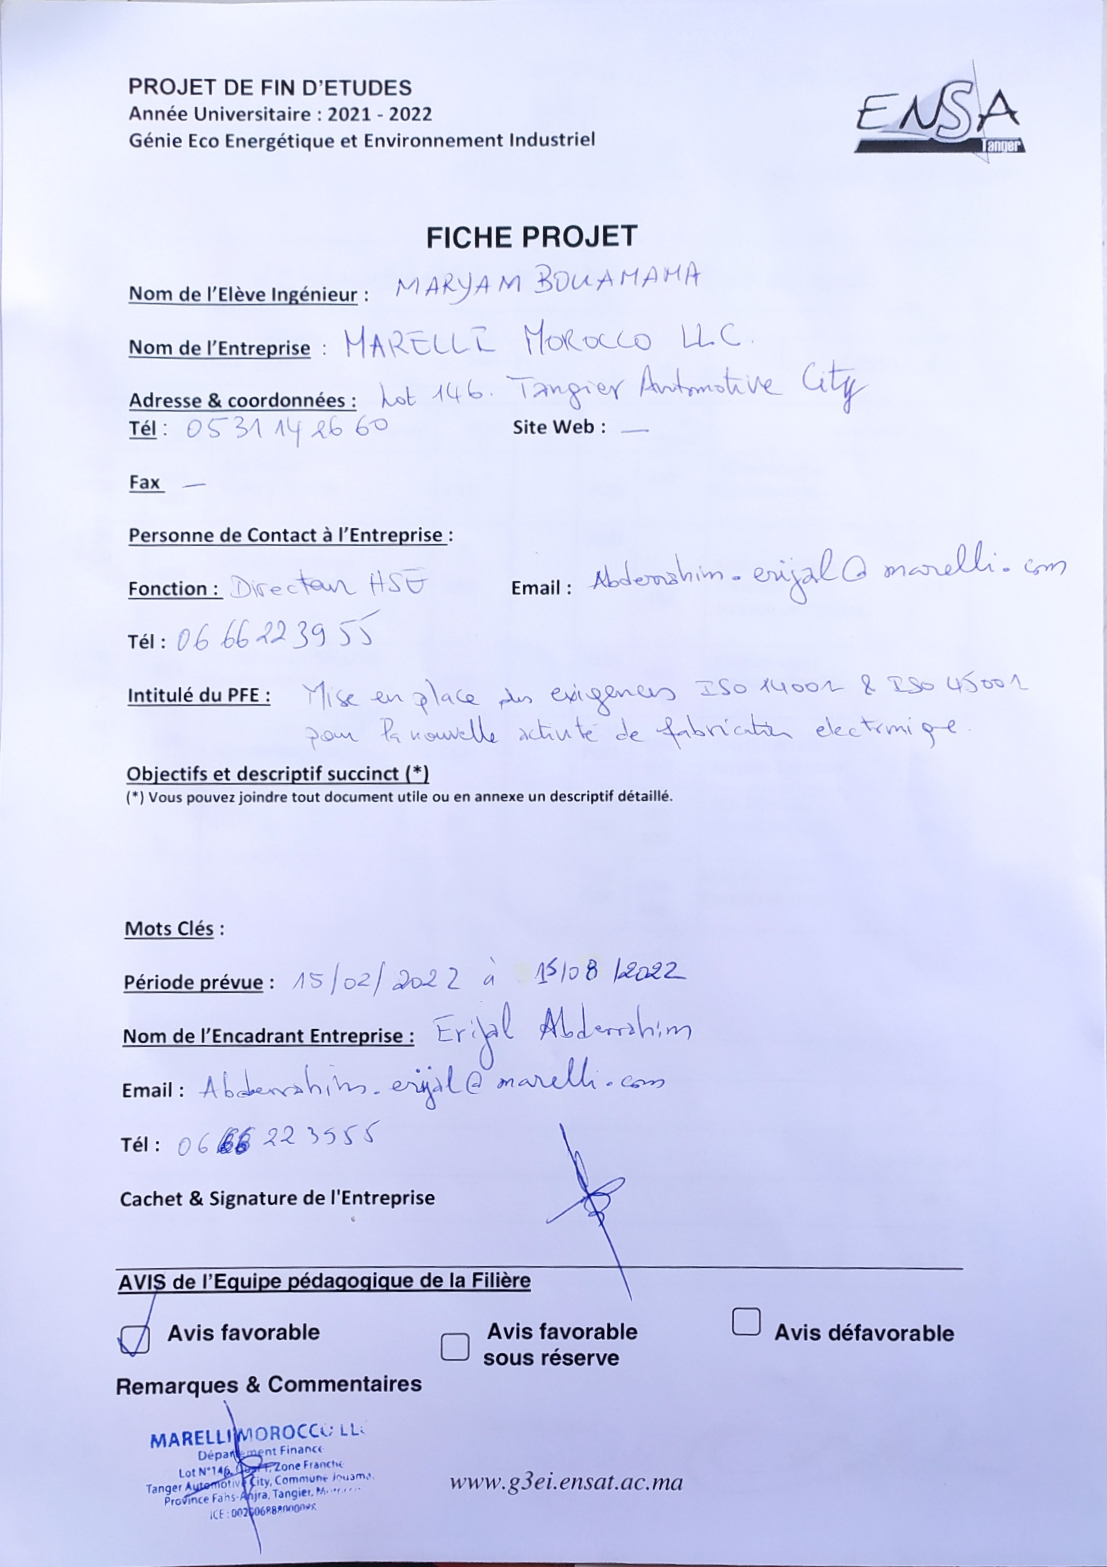 PROJET DE FIN D'ETUDES
Année Universitaire : 2021 - 2022
Génie Eco Energétique et Environnement Industriel
ENSA
Tanger
FICHE PROJET
Nom de l'Elève Ingénieur : MARYAM BOUAMAMA
Nom de l'Entreprise : MARELLI MOROCCO LLC.
Adresse & coordonnées : Lot 146. Tangier Automotive City
Tél : 05 31 14 26 60 Site Web : —
Fax —
Personne de Contact à l'Entreprise :
Fonction : Directeur HSE Email : Abderrahim.erijal@marelli.com
Tél : 06 66 22 39 55
Intitulé du PFE : Mise en place des exigences ISO 14001 & ISO 45001
pour la nouvelle activité de fabrication electronique.
Objectifs et descriptif succinct (*)
(*) Vous pouvez joindre tout document utile ou en annexe un descriptif détaillé.
Mots Clés :
Période prévue : 15/02/2022 à 15/08/2022
Nom de l'Encadrant Entreprise : Erijal Abderrahim
Email : Abderrahim.erijal@marelli.com
Tél : 06 66 22 3955
Cachet & Signature de l'Entreprise
AVIS de l'Equipe pédagogique de la Filière
Avis favorable
Avis favorable
sous réserve
Avis défavorable
Remarques & Commentaires
MARELLI MOROCCO LLC
Département Finance
Lot N°146, Zone Franche
Tanger Automotive City, Commune Jouama,
Province Fahs-Anjra, Tangier,
ICE :
www.g3ei.ensat.ac.ma